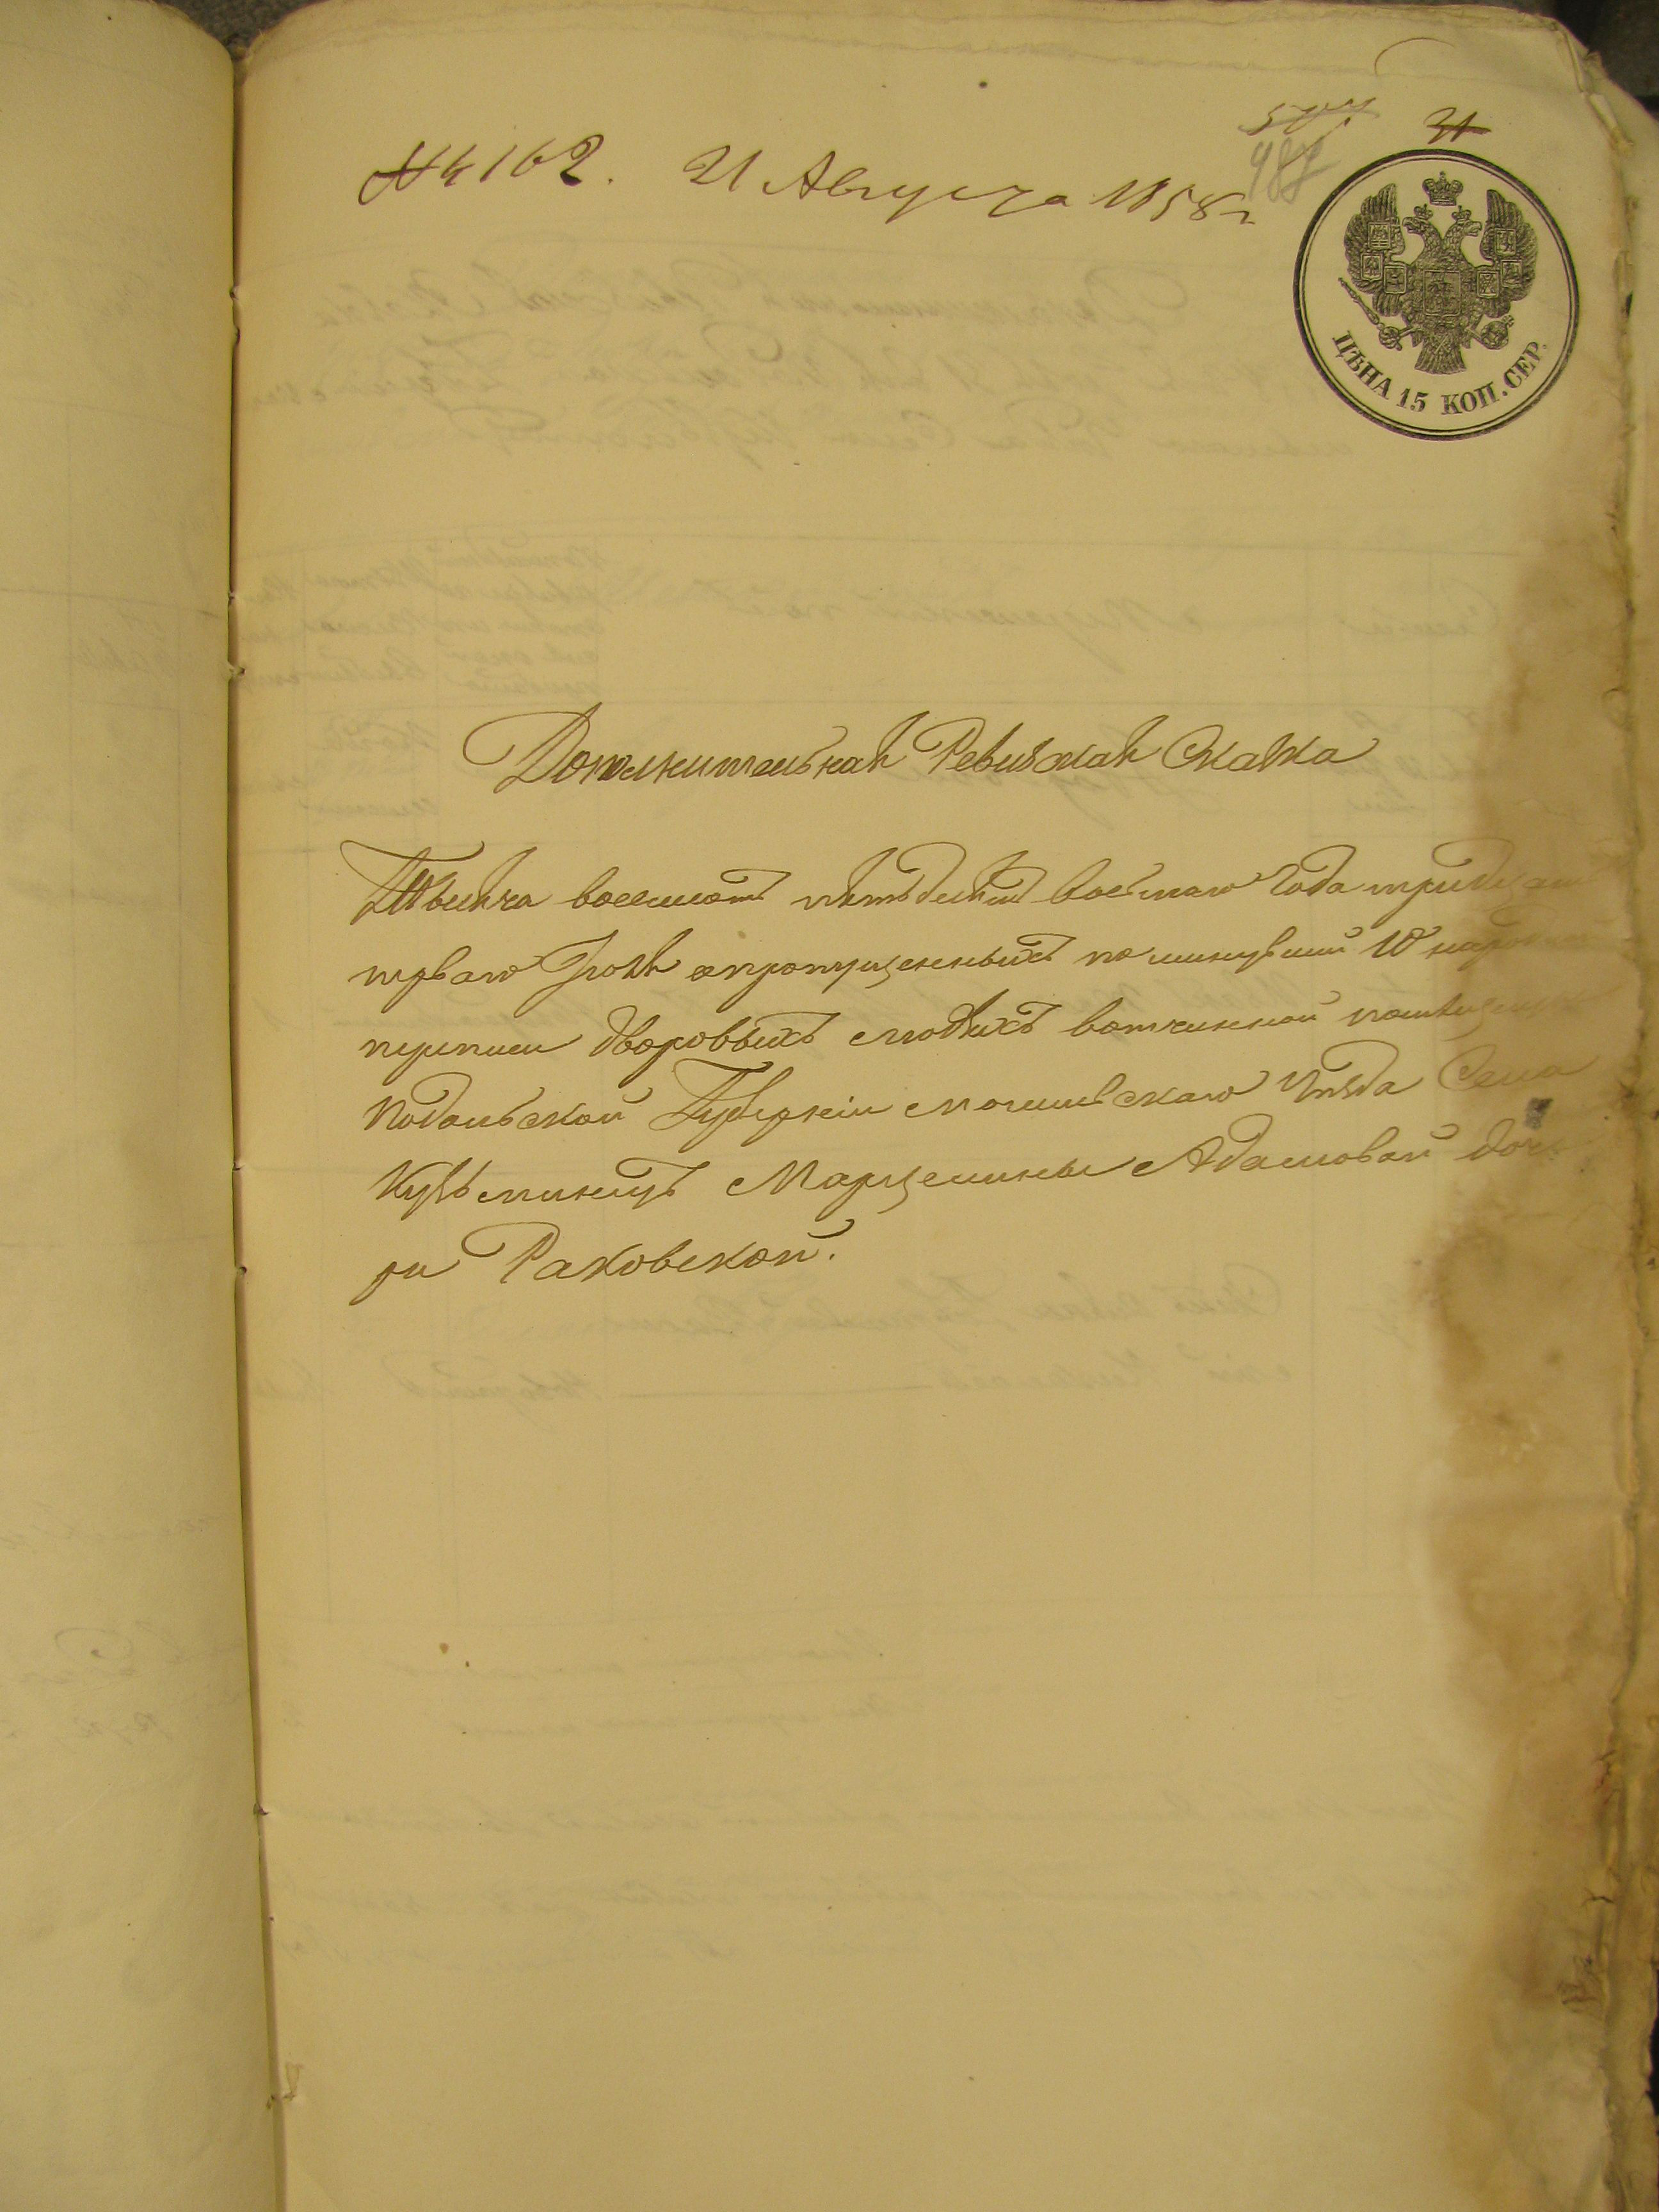 № 4162. 21 Августа 1858 г
31
488
ЦѢНА 15 КОП. СЕР.
Дополнительная Ревизская Сказка
Тысяча восемсотъ пятьдесятъ восьмаго Года тридцат
перваго Іюля опропущенныхъ по минувшей 10 народной
переписи дворовыхъ людяхъ вотчинной помѣщицы
Подольской Губерніи могилевскаго Уѣзда Села
Кузьминецъ Марцелины Адамовой доче
ри Раковской.